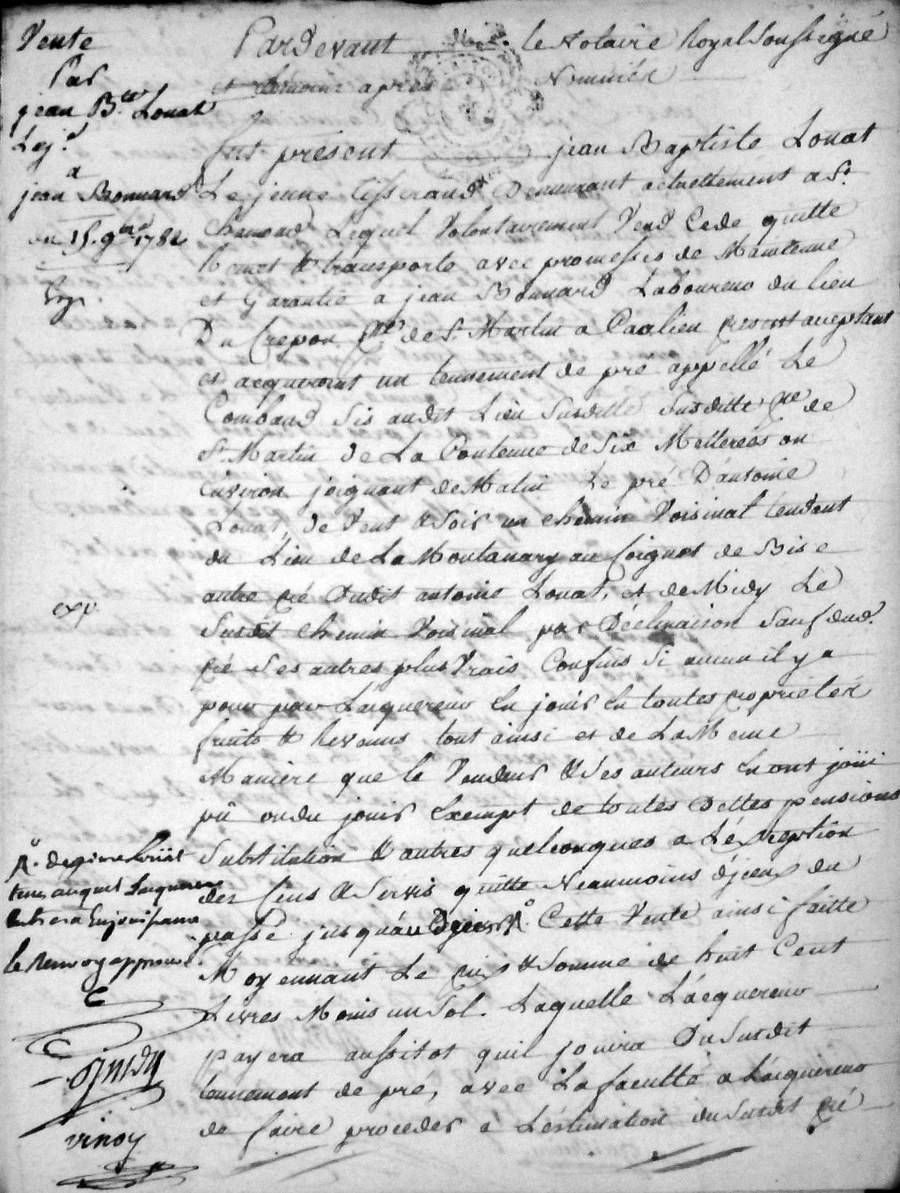 Vente
Par
jean B.te Louat
Lej.e
a
jean Bonnard
du 15. 9bre 1782
exp.
Pardevant le Notaire Royal Soussigné
et temoins apres Nommés
fut présent jean Baptiste Louat
Le jeune tisserand Demeurant actuellement a St.
Chamond Lequel Volontairement Vend Cede quitte
Remet & transporte avec promesses de Maintenue
et Garantie a jean Bonnard Laboureur du lieu
Du Crepon psse de St. Martin a Coalieu present acceptant
et acquerant un tennement de pré appellé Le
Comband Sis audit Lieu Susditte psse de
St. Martin de La Contenue de Six Metterées ou
Environ joignant de Matin Le pré D'antoine
Louat, de Vent & Soir un chemin Voisinal tendant
du Lieu de La Montanary au Coignet de Bise
autre pré Dudit antoine Louat, et de Midy Le
Susdit chemin Voisinal par Déclinaison Sauf dud.
pré Ses autres plus Vrais Confins Si aucun il y a
pour par L'acquereur En jouir En toutes proprietés
fruits & Revenus tout ainsi et de La Meme
Maniere que le Vendeur & Ses auteurs En ont joüi
pû ou du jouir Exempt de toutes Dettes pensions
Substitution & autres quelconques a L'éxception
des Cens & Servis quitte Neanmoins d'iceux du
passé jusqu'au Cette Vente ainsi faitte
Moyennant Le prix & Somme de huit Cent
Livres Moins un Sol. Laquelle L'acquereur
payera aussitot quil jouira Du Susdit
tennement de pré, avec La faculté a L'acquereur
de faire proceder a L'estimation du Susdit pré
exp.
auquel Lacquereur
Entrera En jouissance
le Renvoy approuvé
vinoy